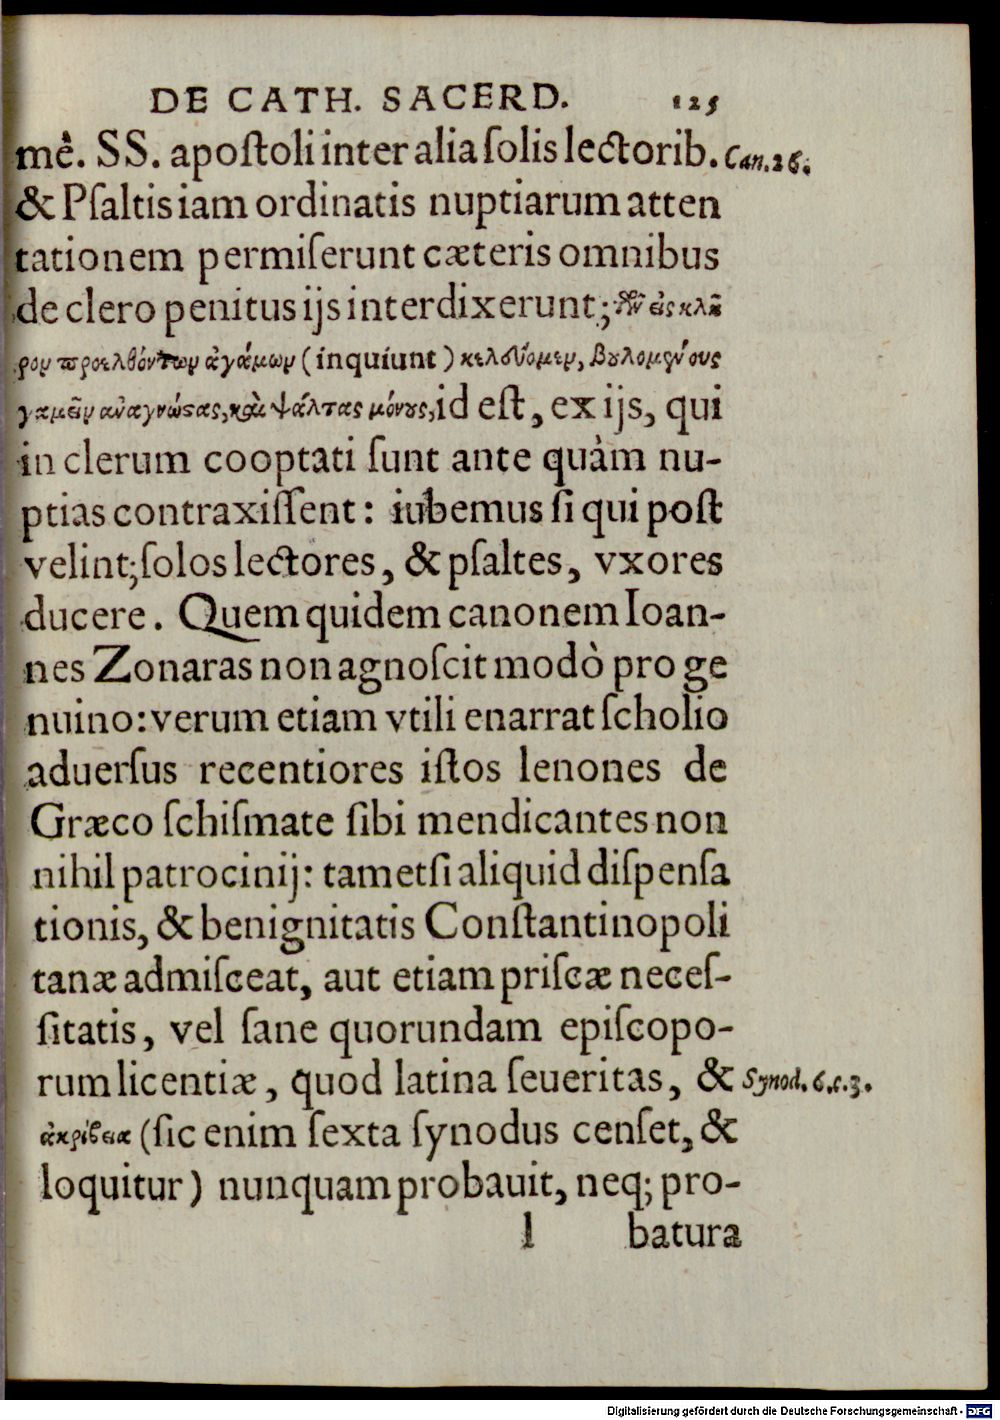 DE CATH. SACERD. 125
mē. SS. apoſtoli inter alia ſolis lectorib. Can. 26.
& Pſaltis iam ordinatis nuptiarum atten
tationem permiſerunt cæteris omnibus
de clero penitus ijs interdixerunt; τῶν εἰς κλῆ
ρον προελθόντων ἀγάμων (inquiunt) κελεύομεν, βουλομένους
γαμεῖν ἀναγνώστας, καὶ ψάλτας μόνους, id eſt, ex ijs, qui
in clerum cooptati ſunt ante quàm nu-
ptias contraxiſſent: iubemus ſi qui poſt
velint; ſolos lectores, & pſaltes, vxores
ducere. Quem quidem canonem Ioan-
nes Zonaras non agnoſcit modò pro ge
nuino: verum etiam vtili enarrat ſcholio
aduerſus recentiores iſtos lenones de
Græco ſchiſmate ſibi mendicantes non
nihil patrocinij: tametſi aliquid diſpenſa
tionis, & benignitatis Conſtantinopoli
tanæ admiſceat, aut etiam priſcæ neceſ-
ſitatis, vel ſane quorundam epiſcopo-
rum licentiæ, quod latina ſeueritas, & Synod. 6. c. 3.
ἀκρίβεια (ſic enim ſexta ſynodus cenſet, &
loquitur) nunquam probauit, neq; pro-
l batura
Digitalisierung gefördert durch die Deutsche Forschungsgemeinschaft - DFG